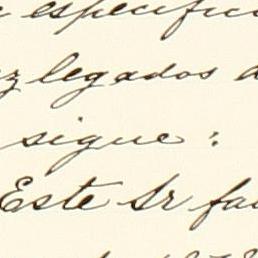 especific
legados
sigue:
Este Sr fa